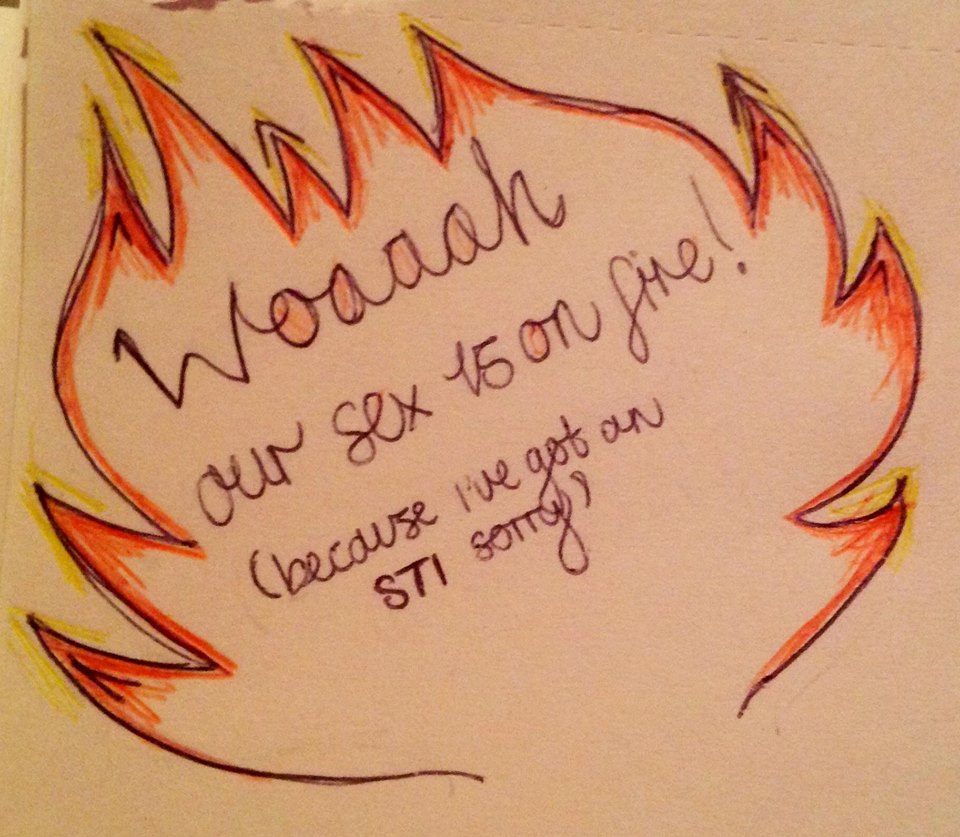 Woaaah
our sex is on fire!
(because I've got an
STI sorry)